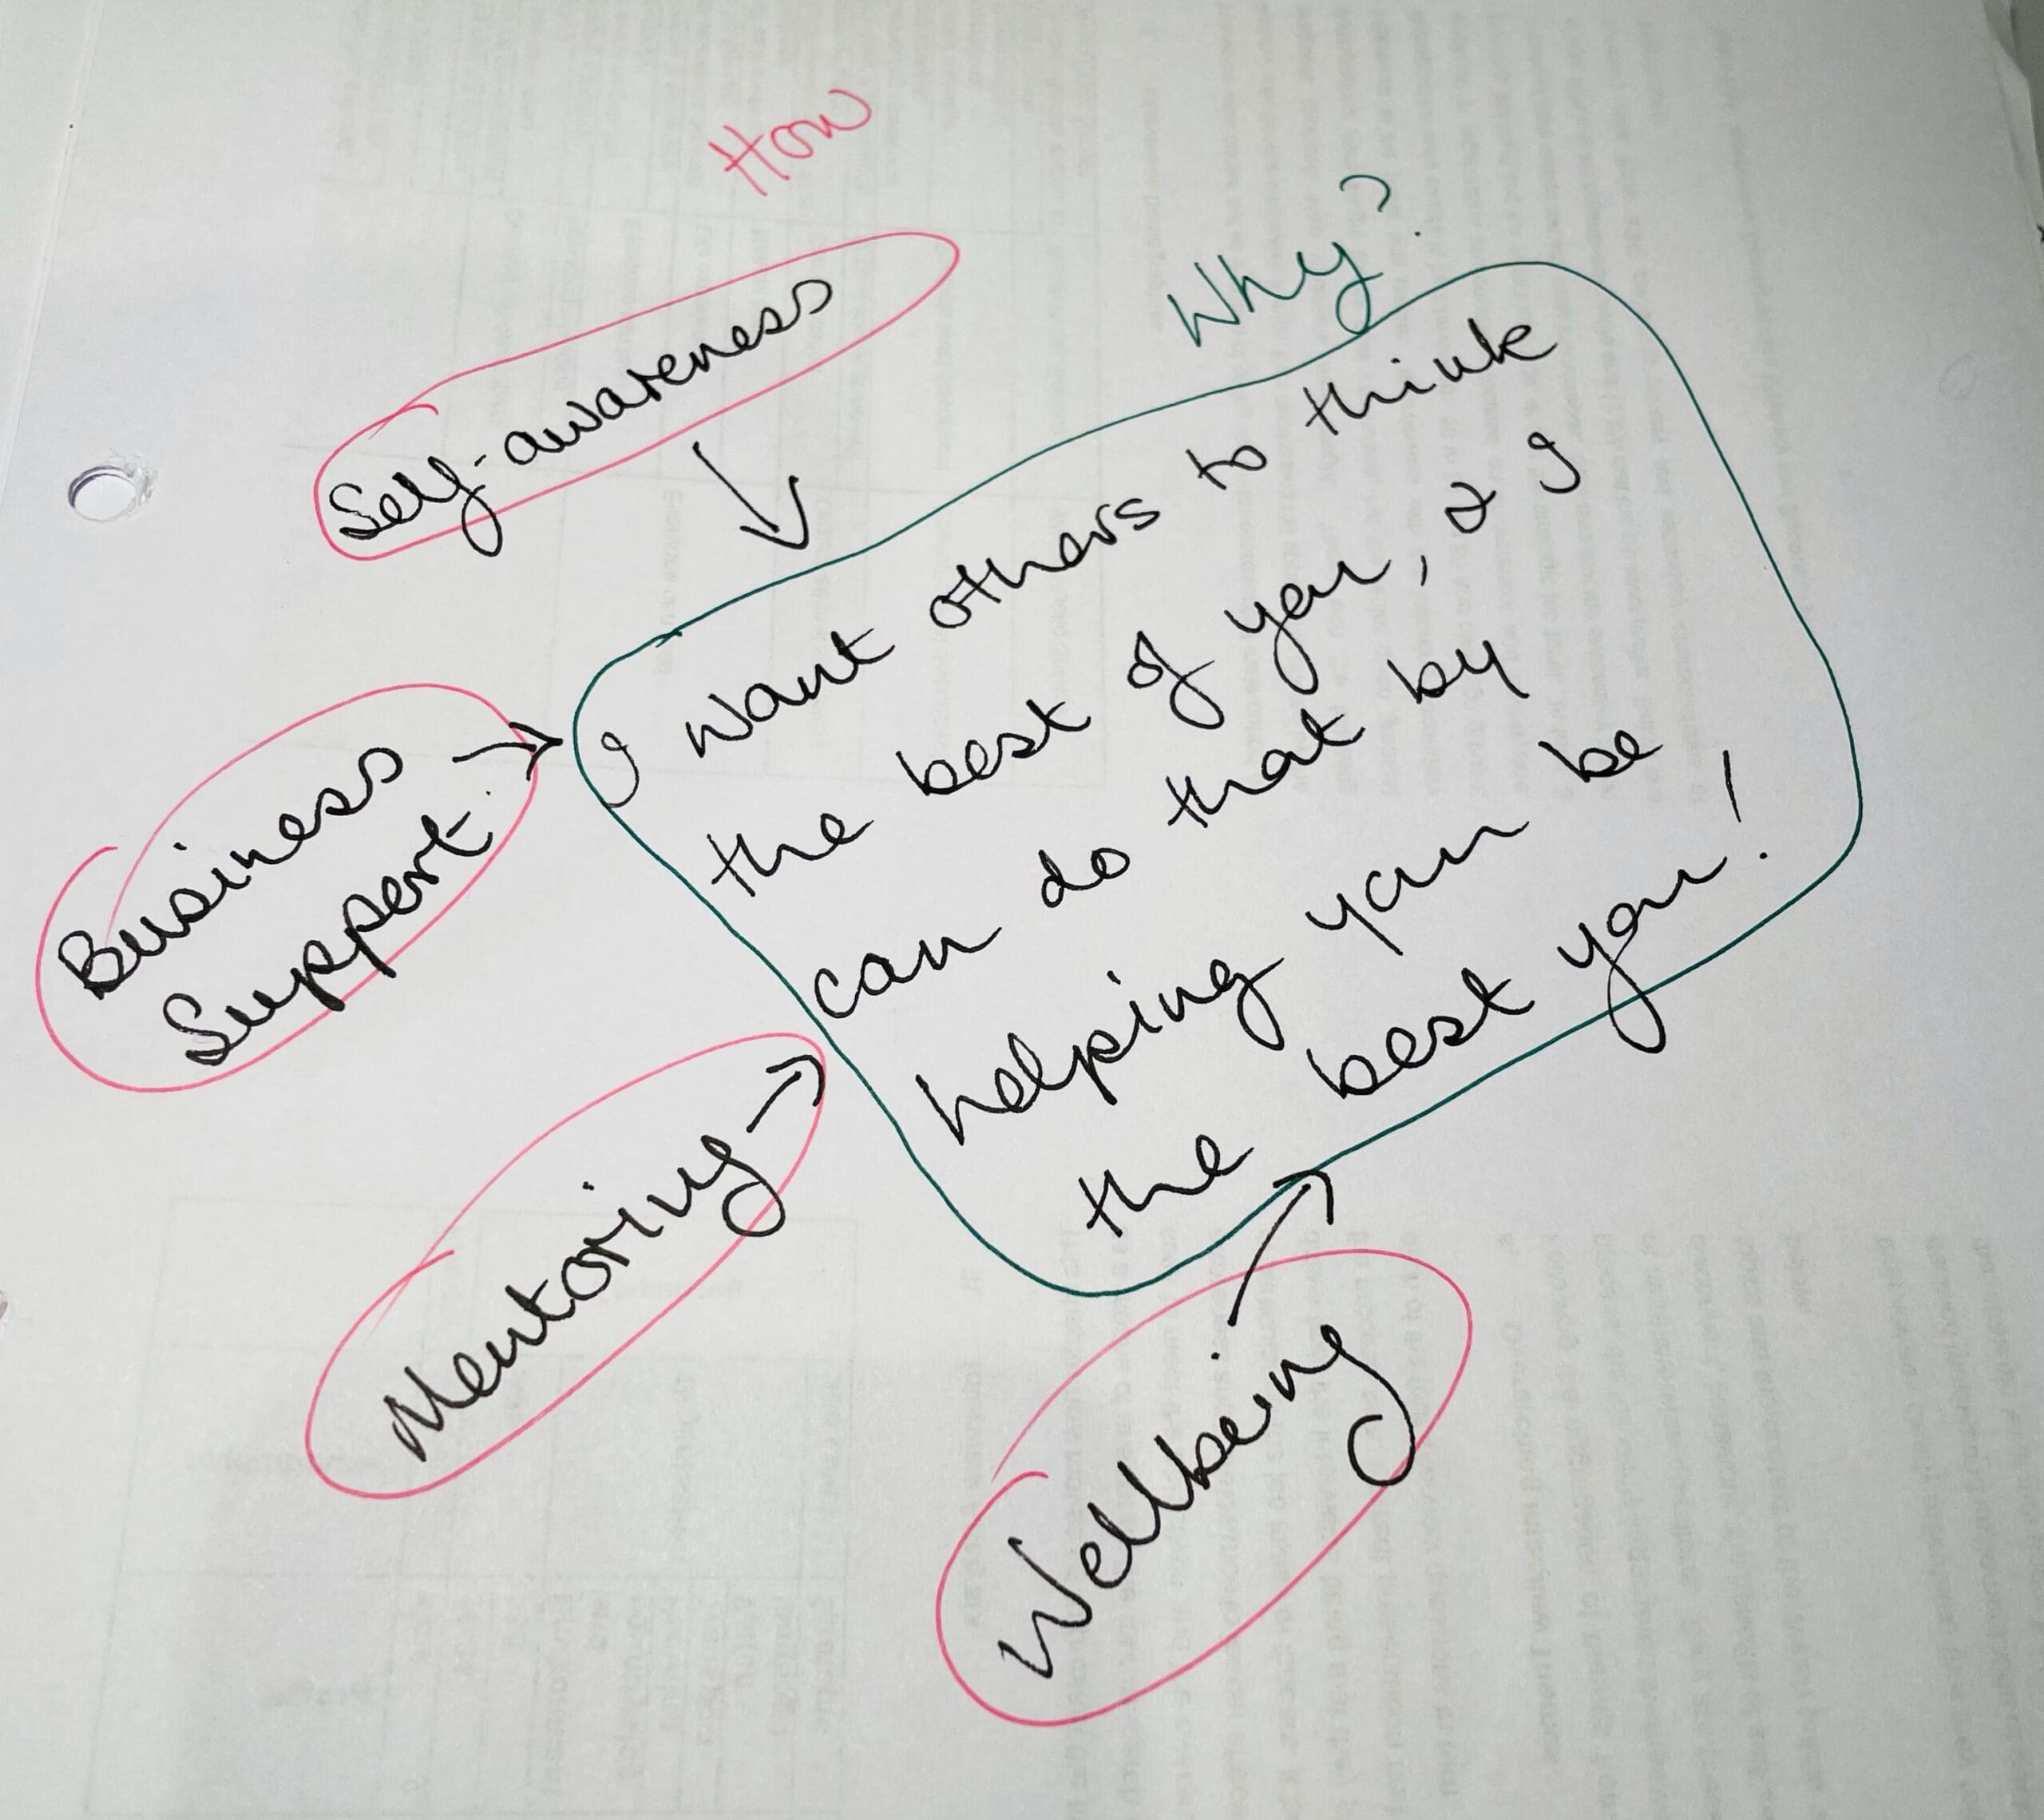 How
Why?
Self-awareness
I want others to think
the best of you, & I
can do that by
helping you be
the best you!
Business
Support
Mentoring
Wellbeing